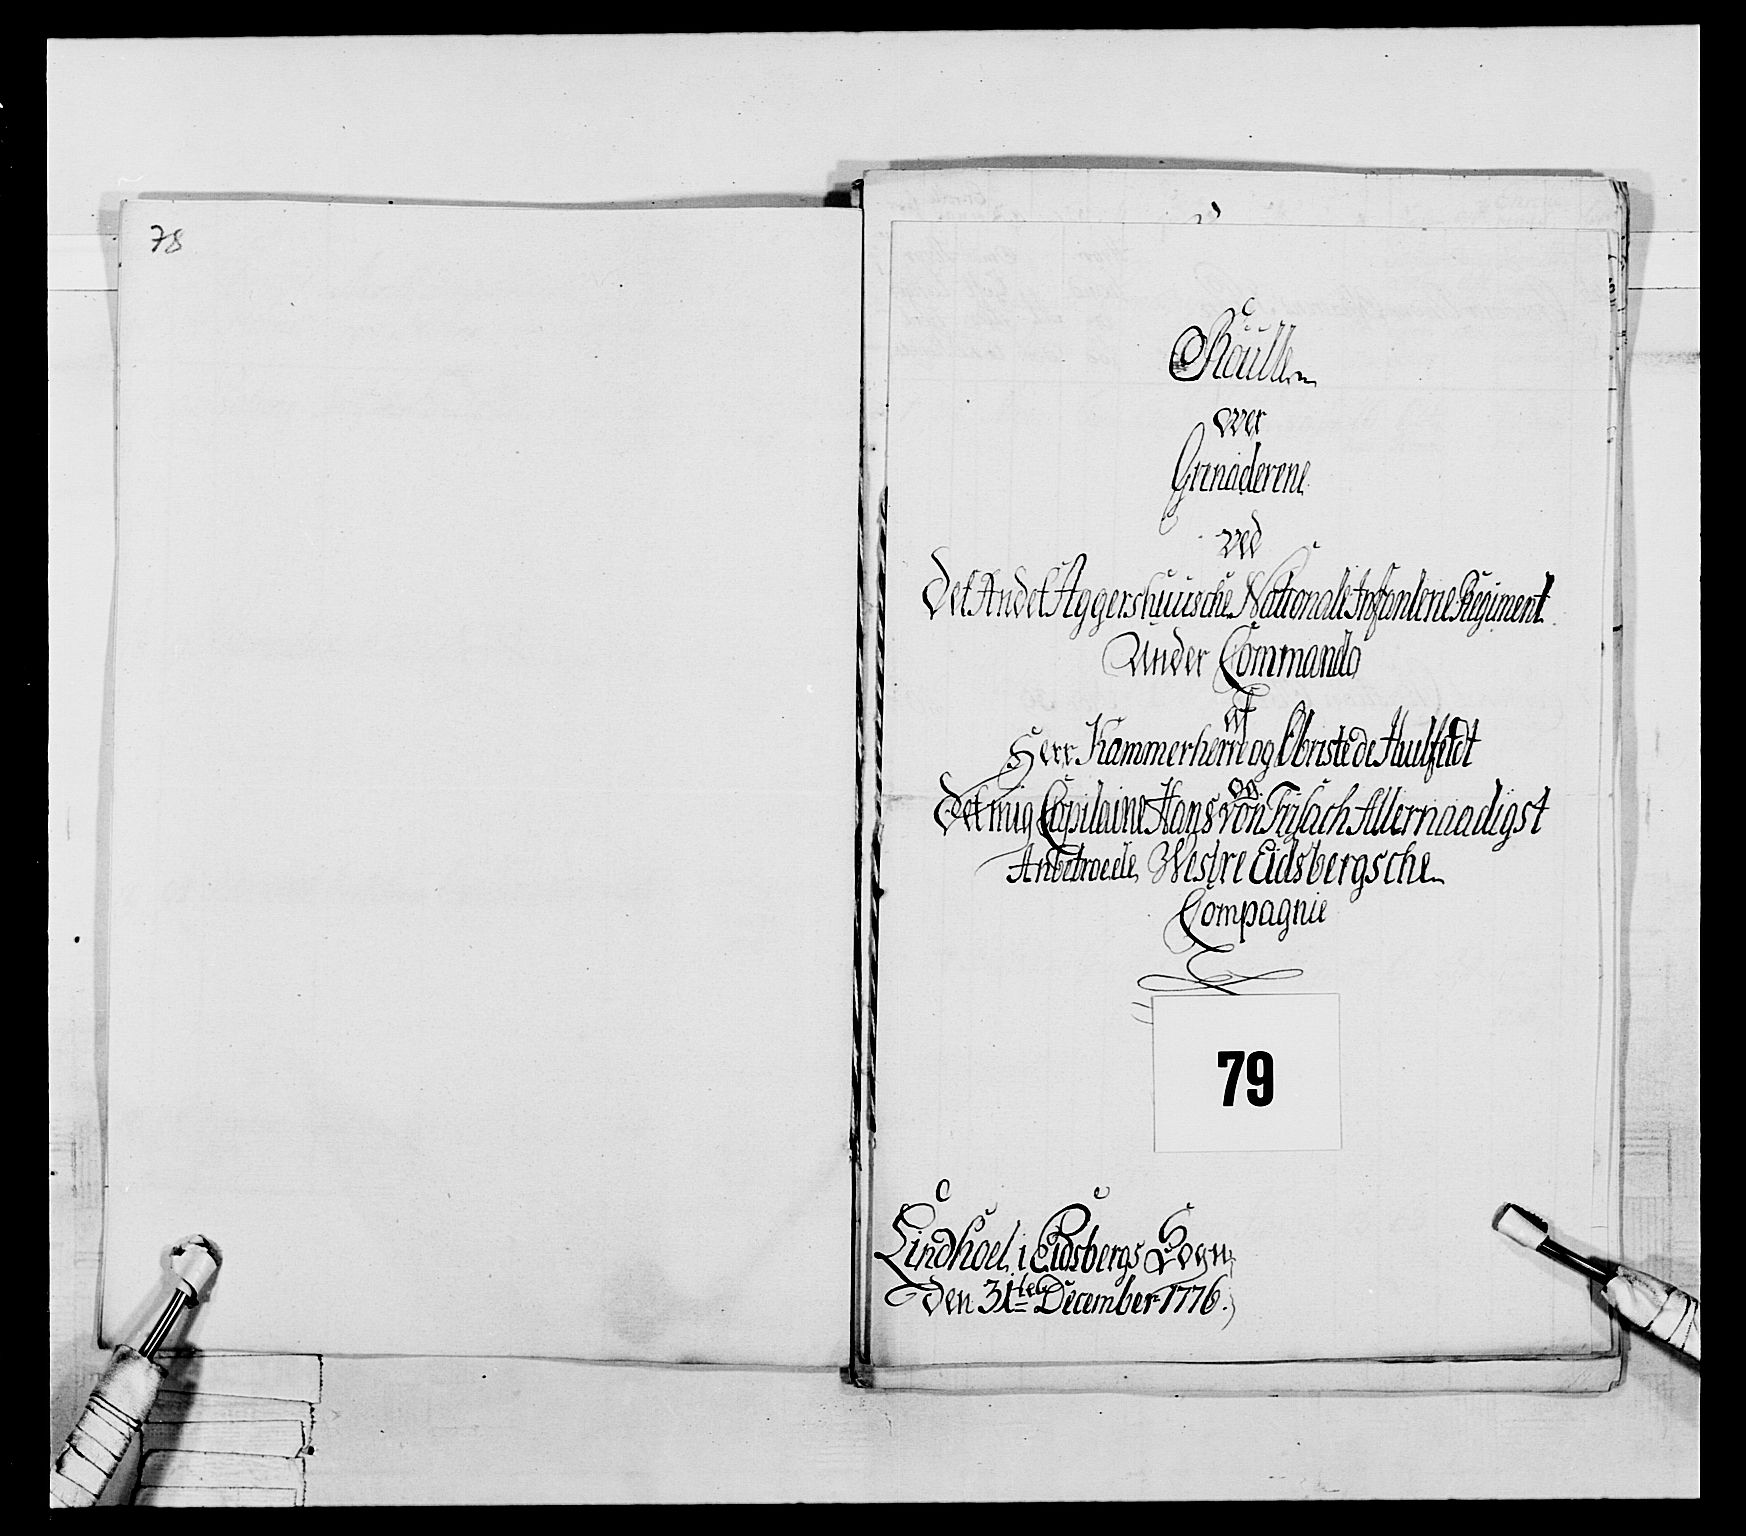 78
Roulle
over
Grenaderene
ved
Det Andet Aggershuusche Nationale Infanterie Regiment
Under Commando
af
Herr Kammerherre og Obriste de Huitfeldt
og
Det mig Capitaine Hans von Trÿsach Allernaadigst
Anbetroede Westre Eidsbergsche
Compagnie
79
Lindhoel i Eidsbergs Sogn
den 31ten December 1776.